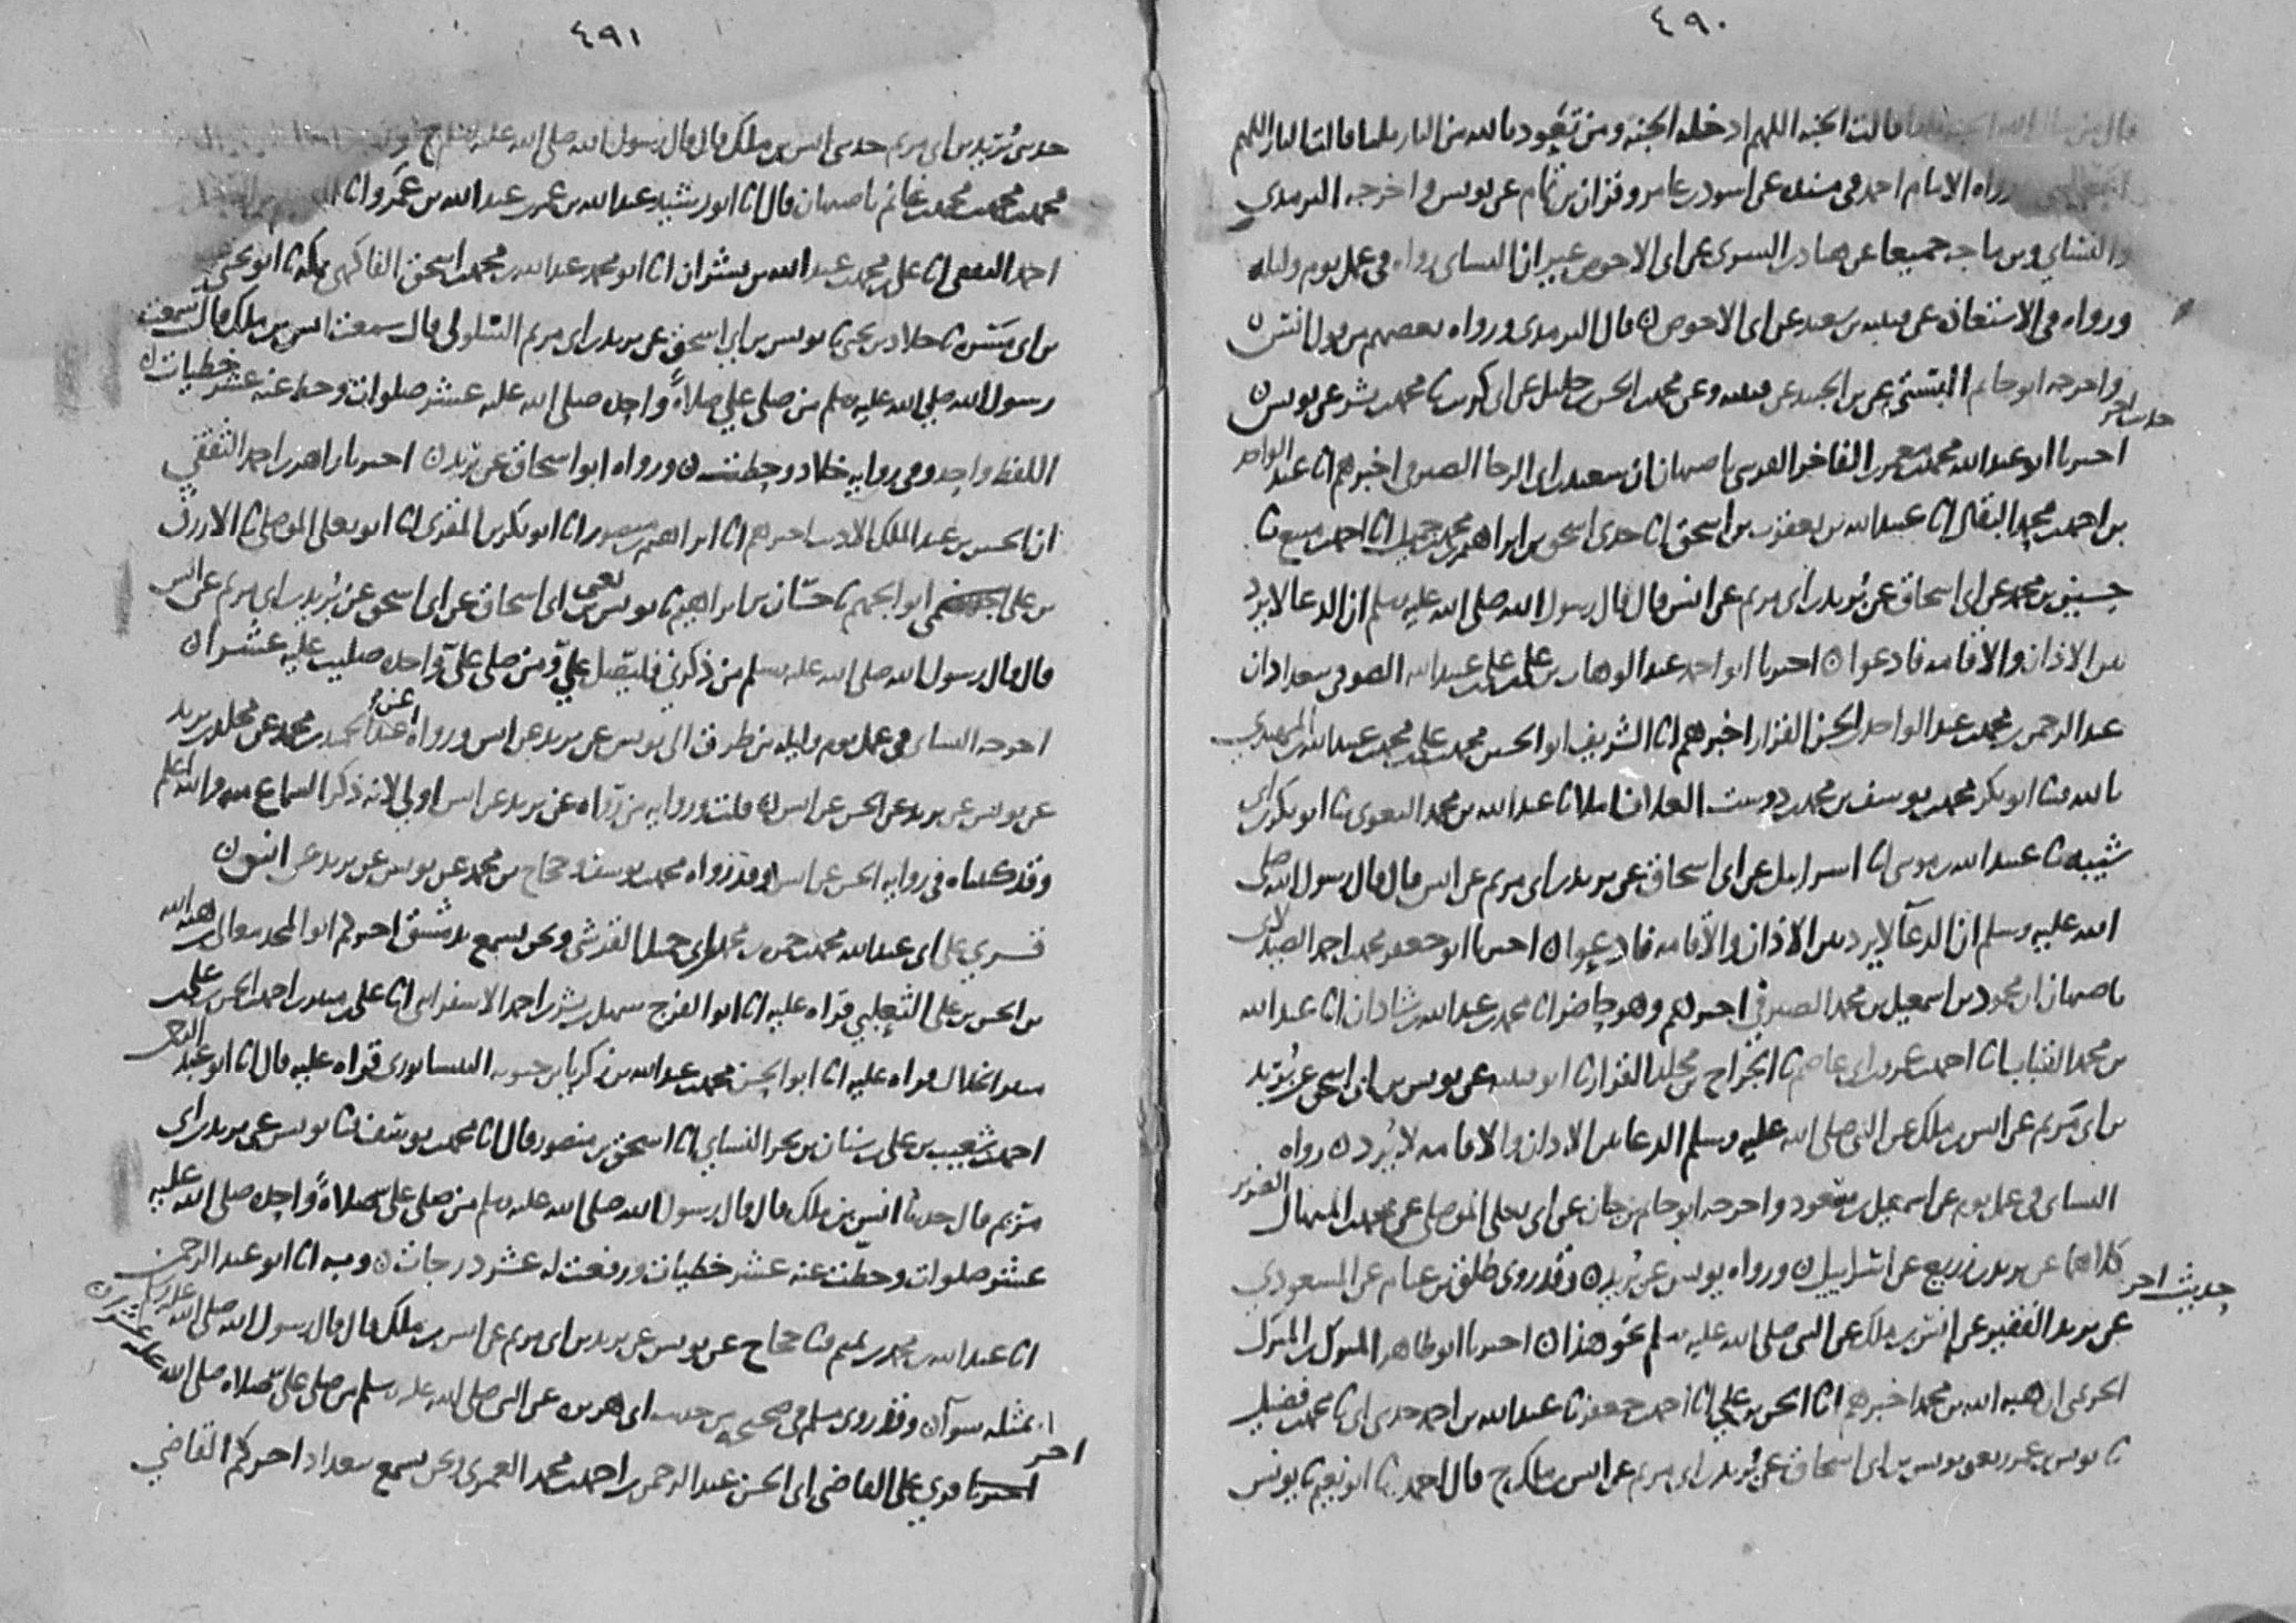 ٤٩٠
قال من سال الله الجنه ثلثا قالت الجنه اللهم ادخله الجنه ومن تعوذ بالله من النار ثلثا قالت النار اللهم
رواه الامام احمد في مسنده عن اسود بن عامر وقران بن تمام عن يونس واخرجه الترمذي
والنساي وبن ماجه جميعا عن هناد بن السري عن ابي الاحوص غير ان النساي رواه في عمل يوم وليله
ورواه في الاستعاذه عن قتيبه بن سعيد عن ابي الاحوص ن قال الترمذي ورواه بعضهم من قول انس ن
واخرجه ابو حاتم البستي عن بن الجنيد عن قتيبه وعن محمد بن الحسن بن خليل عن ابي كريب نا محمد بن بشر عن يونس ن
حديث اخر
اخبرنا ابو عبد الله محمد بن معمر بن الفاخر القرشي باصبهان ان سعيد بن ابي الرجا الصيرفي اخبرهم انا عبد الواحد
بن احمد بن محمد البقال انا عبيد الله بن يعقوب بن اسحق انا جدي اسحق بن ابراهيم بن محمد بن جميل انا احمد بن منيع نا
حسين بن محمد عن ابي اسحاق عن بريد بن ابي مريم عن انس قال قال رسول الله صلى الله عليه وسلم ان الدعا لا يرد
بين الاذان والاقامه فادعوا ن اخبرنا ابو احمد عبد الوهاب بن علي بن علي بن عبيد الله الصوفي ببغداد ان
عبد الرحمن بن محمد بن عبد الواحد بن الحسن القزاز اخبرهم انا الشريف ابو الحسين محمد بن علي بن محمد بن عبيد الله بن المهتدي
بالله نا ابو بكر محمد بن يوسف بن محمد بن دوست العلاف املا نا عبد الله بن محمد البغوي نا ابو بكر بن ابي
شيبه نا عبيد الله بن موسى انا اسرايل عن ابي اسحاق عن بريد بن ابي مريم عن انس قال قال رسول الله صلى
الله عليه وسلم ان الدعا لا يرد بين الاذان والاقامه فادعوا ن اخبرنا ابو جعفر محمد بن احمد الصيدلاني
باصبهان ان محمود بن اسمعيل بن محمد الصيرفي اخبرهم وهو حاضر انا محمد بن عبد الله بن شاذان انا عبد الله
بن محمد القباب انا احمد بن عمرو بن ابي عاصم نا الجراح بن مخلد القزاز نا ابو قتيبه عن يونس بن ابي اسحق عن بريد
بن ابي مريم عن انس بن ملك عن النبي صلى الله عليه وسلم الدعا بين الاذان والاقامه لا يرد ن رواه
النساي في عمل يوم عن اسمعيل بن مسعود واخرجه ابو حاتم بن حبان عن ابي يعلى الموصلي عن محمد بن المنهال الضرير
كلاهما عن يزيد بن زريع عن اسرايل ن ورواه يونس عن بريد ن وقد روى طلق بن غنام عن المسعودي
عن يزيد الفقير عن انس بن ملك عن النبي صلى الله عليه وسلم نحو هذا ن اخبرنا ابو طاهر المبرك بن المبرك
حديث اخر
الحريمي ان هبه الله بن محمد اخبرهم انا الحسن بن علي انا احمد بن جعفر نا عبد الله بن احمد حدثني ابي نا محمد بن فضيل
نا يونس بن عمرو يعني يونس بن ابي اسحاق عن بريد بن ابي مريم عن انس بن ملك ح قال احمد نا ابو نعيم نا يونس
٤٩١
حدثني بريد بن ابي مريم حدثني انس بن ملك قال قال رسول الله صلى الله عليه وسلم ح
محمد بن محمد بن محمد بن غانم باصبهان قال انا ابو رشيد عبد الله بن عمر بن عبد الله بن عمر وانا
احمد الثقفي انا علي بن محمد بن عبد الله بن بشران انا ابو محمد عبد الله بن محمد بن اسحق الفاكهي بمكه نا ابو يحيى
بن ابي مسره نا خلاد بن يحيى نا يونس بن ابي اسحق عن بريد بن ابي مريم السلولي قال سمعت انس بن ملك قال سمعت
رسول الله صلى الله عليه وسلم من صلى علي صلاة واحده صلى الله عليه عشر صلوات وحط عنه عشر خطيات ن
اللفظ واحد وفي روايه خلاد وحطت ن ورواه ابو اسحاق عن بريد ن اخبرنا زاهر بن احمد الثقفي
ان الحسين بن عبد الملك الاديب اخبرهم انا ابراهيم بن منصور انا ابو بكر بن المقرئ انا ابو يعلى الموصلي نا الازرق
بن علي ابو الجهم نا حسان بن ابراهيم نا يونس يعني بن ابي اسحاق عن ابي اسحق عن بريد بن ابي مريم عن انس
قال قال رسول الله صلى الله عليه وسلم من ذكرني فليصل علي ومن صلى علي واحده صليت عليه عشرا ن
اخرجه النساي في عمل يوم وليله من طرق الى يونس عن بريد عن انس ورواه عن عبد الحميد بن محمد عن مخلد بن يزيد
عن يونس عن بريد عن الحسن عن انس ن قلت وروايه من رواه عن بريد عن انس اولى لانه ذكر السماع منه والله اعلم
وقد كتبناه في روايه الحسن عن انس وقد رواه محمد بن يوسف وحجاج بن محمد عن يونس عن بريد عن انس ن
قري على ابي عبد الله محمد بن حمزه بن محمد بن ابي جميل القرشي ونحن نسمع بدمشق اخبركم ابو المجد معالي بن هبه الله
بن الحسن بن علي الثعلبي قراه عليه انا ابو الفرج سهل بن بشر بن احمد الاسفرايني انا علي بن منير بن احمد بن الحسن بن علي بن
منير الخلال قراه عليه انا ابو الحسن محمد بن عبد الله بن زكريا بن حيويه النيسابوري قراه عليه قال انا ابو عبد الرحمن
احمد بن شعيب بن علي بن سنان بن بحر النساي انا اسحق بن منصور قال انا محمد بن يوسف نا يونس عن بريد بن ابي
مريم قال حدثنا انس بن ملك قال قال رسول الله صلى الله عليه وسلم من صلى علي صلاة واحده صلى الله عليه
عشر صلوات وحطت عنه عشر خطيات ورفعت له عشر درجات ن وبه انا ابو عبد الرحمن
انا عبد الله بن محمد بن تميم نا حجاج عن يونس عن بريد بن ابي مريم عن انس بن ملك قال قال رسول الله صلى الله عليه وسلم
بمثله سوآ ن وقد روى مسلم في صحيحه من حديث ابي هريره عن النبي صلى الله عليه وسلم من صلى علي صلاه صلى الله عليه عشرا ن
اخر
اخبرنا قري على القاضي ابي الحسن عبد الرحمن بن احمد بن محمد العمري ونحن نسمع ببغداد اخبركم القاضي